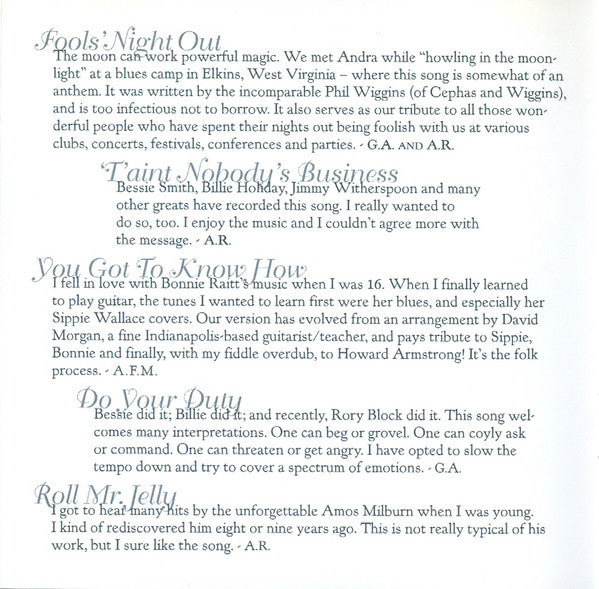 Fools' Night Out
The moon can work powerful magic. We met Andra while “howling in the moon-
light” at a blues camp in Elkins, West Virginia – where this song is somewhat of an
anthem. It was written by the incomparable Phil Wiggins (of Cephas and Wiggins),
and is too infectious not to borrow. It also serves as our tribute to all those won-
derful people who have spent their nights out being foolish with us at various
clubs, concerts, festivals, conferences and parties. - G.A. AND A.R.
'T'aint Nobody's Business
Bessie Smith, Billie Holiday, Jimmy Witherspoon and many
other greats have recorded this song. I really wanted to
do so, too. I enjoy the music and I couldn't agree more with
the message. - A.R.
You Got To Know How
I fell in love with Bonnie Raitt's music when I was 16. When I finally learned
to play guitar, the tunes I wanted to learn first were her blues, and especially her
Sippie Wallace covers. Our version has evolved from an arrangement by David
Morgan, a fine Indianapolis-based guitarist/teacher, and pays tribute to Sippie,
Bonnie and finally, with my fiddle overdub, to Howard Armstrong! It's the folk
process. - A.F.M.
Do Your Duty
Bessie did it; Billie did it; and recently, Rory Block did it. This song wel-
comes many interpretations. One can beg or grovel. One can coyly ask
or command. One can threaten or get angry. I have opted to slow the
tempo down and try to cover a spectrum of emotions. - G.A.
Roll Mr. Jelly
I got to hear many hits by the unforgettable Amos Milburn when I was young.
I kind of rediscovered him eight or nine years ago. This is not really typical of his
work, but I sure like the song. - A.R.